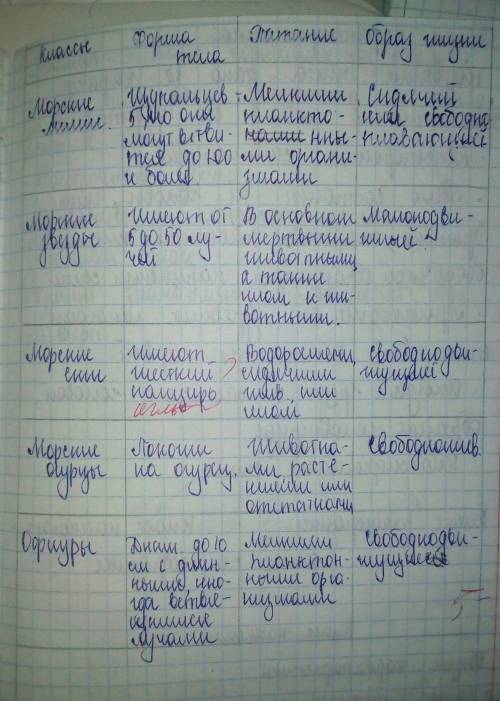 Классы
Форма
тела
Питание
Образ жизни
Морские
лилии.
Щупальцев
5, но они
могут ветви-
ться до 100
и более.
Мелкими
планкто-
нными
ми органи-
змами
Сидячий
или свободно
плавающий
Морские
звезды
Имеют от
5 до 50 лу-
чей
В основном
мертвыми
животными,
а также
илом и жи-
вотными.
Малоподви-
жный
Морские
ежи
Имеют
жесткий
панцирь
иглы
Водорослями,
сидячими
жив. или
илом
свободнодви-
жущиеся
Морские
огурцы
Похожи
на огурец.
Животны-
ми, расте-
ниями или
остатками
свободнопив.
Офиуры
Диам. до 10
см с длин-
ными, ино-
гда ветвя-
щимися
лучами
Мелкими
планктон-
ными орга-
низмами
свободнодви-
жущиеся
5-